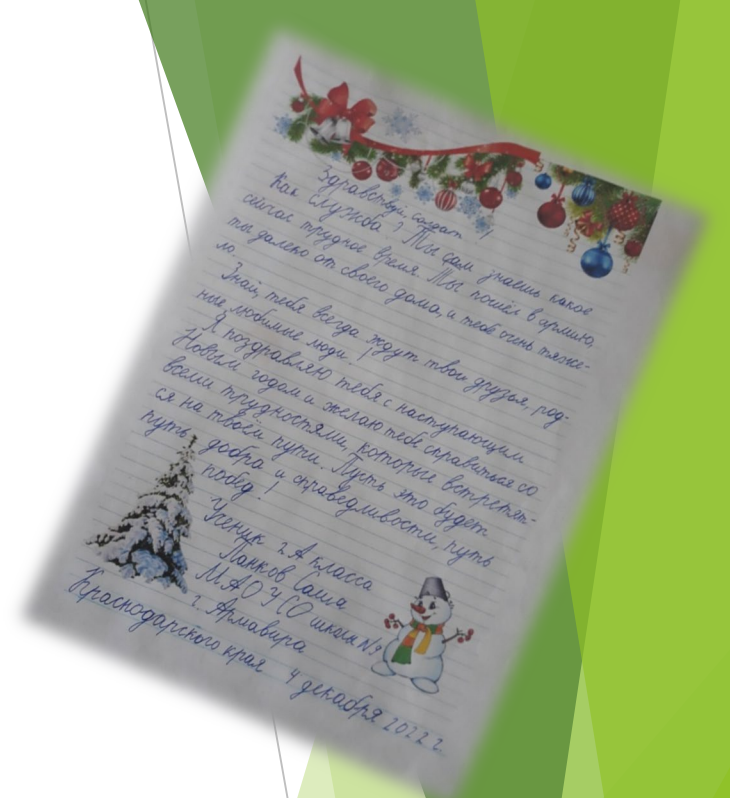 Здравствуй, солдат!
Как служба? Ты сам знаешь какое
сейчас трудное время. Ты пошёл в армию,
ты далеко от своего дома, и тебе очень тяже-
ло.
Знай, тебя всегда ждут твои друзья, род-
ные, любимые люди.
Я поздравляю тебя с наступающим
Новым годом и желаю тебе справиться со
всеми трудностями, которые встретят-
ся на твоём пути. Пусть это будет
путь добра и справедливости, путь
побед!
Ученик 2 А класса
Панков Саша
МАОУСО школы №9
г. Армавира
Краснодарского края 4 декабря 2022 г.